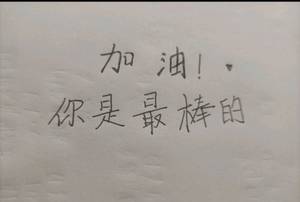 加油！
你是最棒的